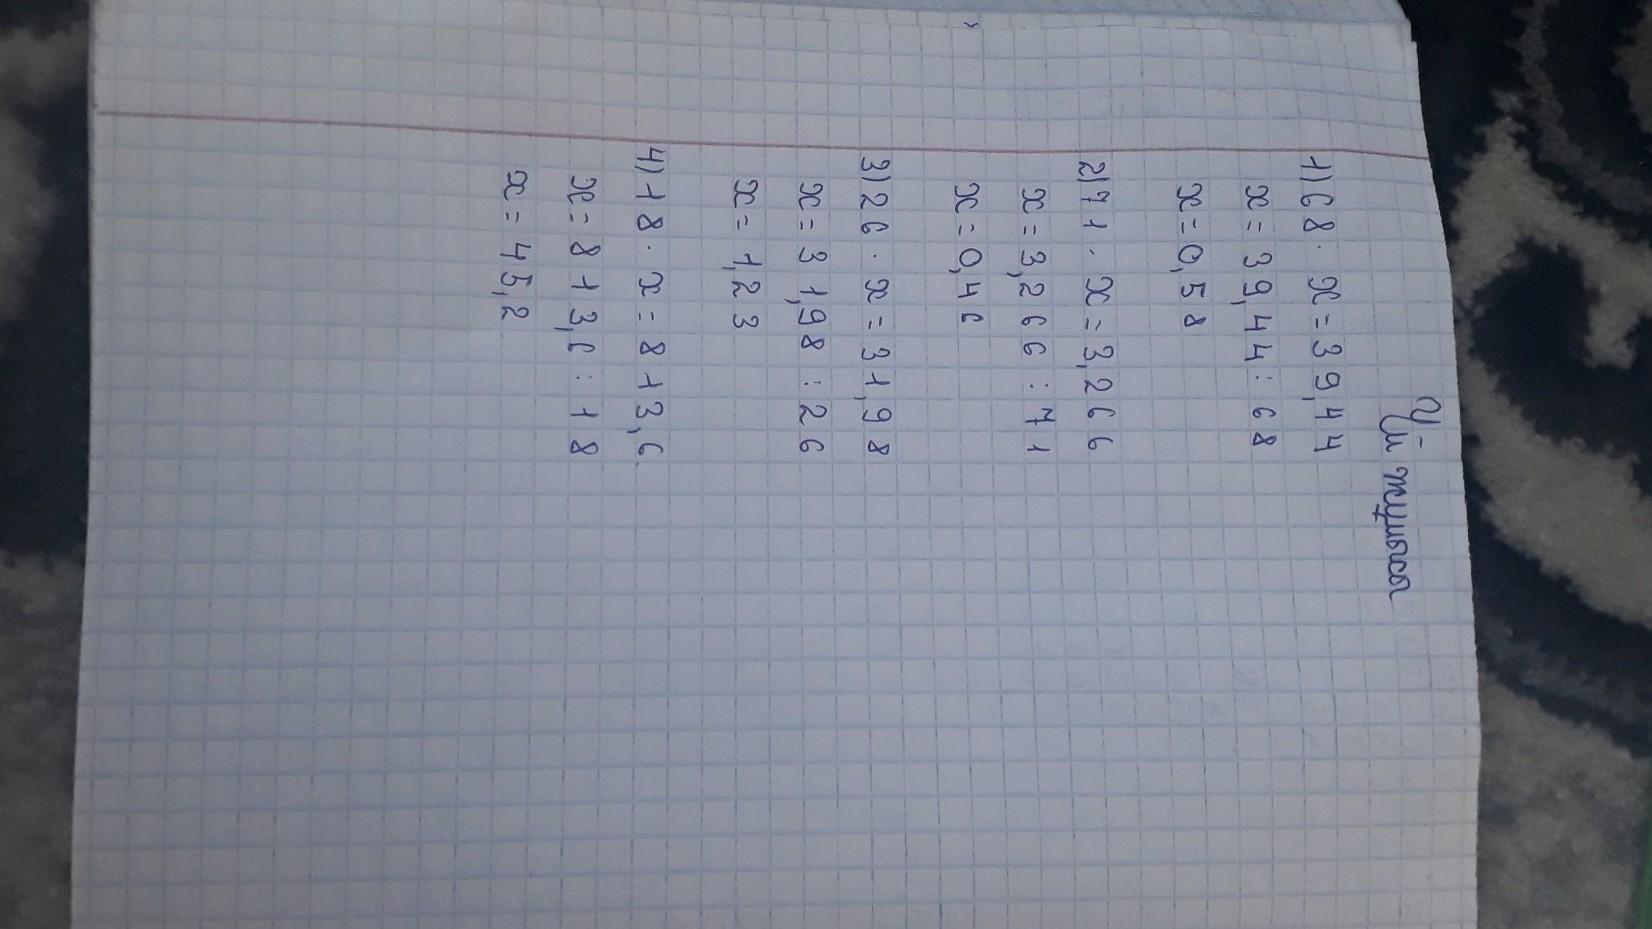 Үй жұмысы
1) 68 · x = 39,44
x = 39,44 : 68
x = 0,58
2) 71 · x = 3,266
x = 3,266 : 71
x = 0,46
3) 26 · x = 31,98
x = 31,98 : 26
x = 1,23
4) 18 · x = 813,6
x = 813,6 : 18
x = 45,2